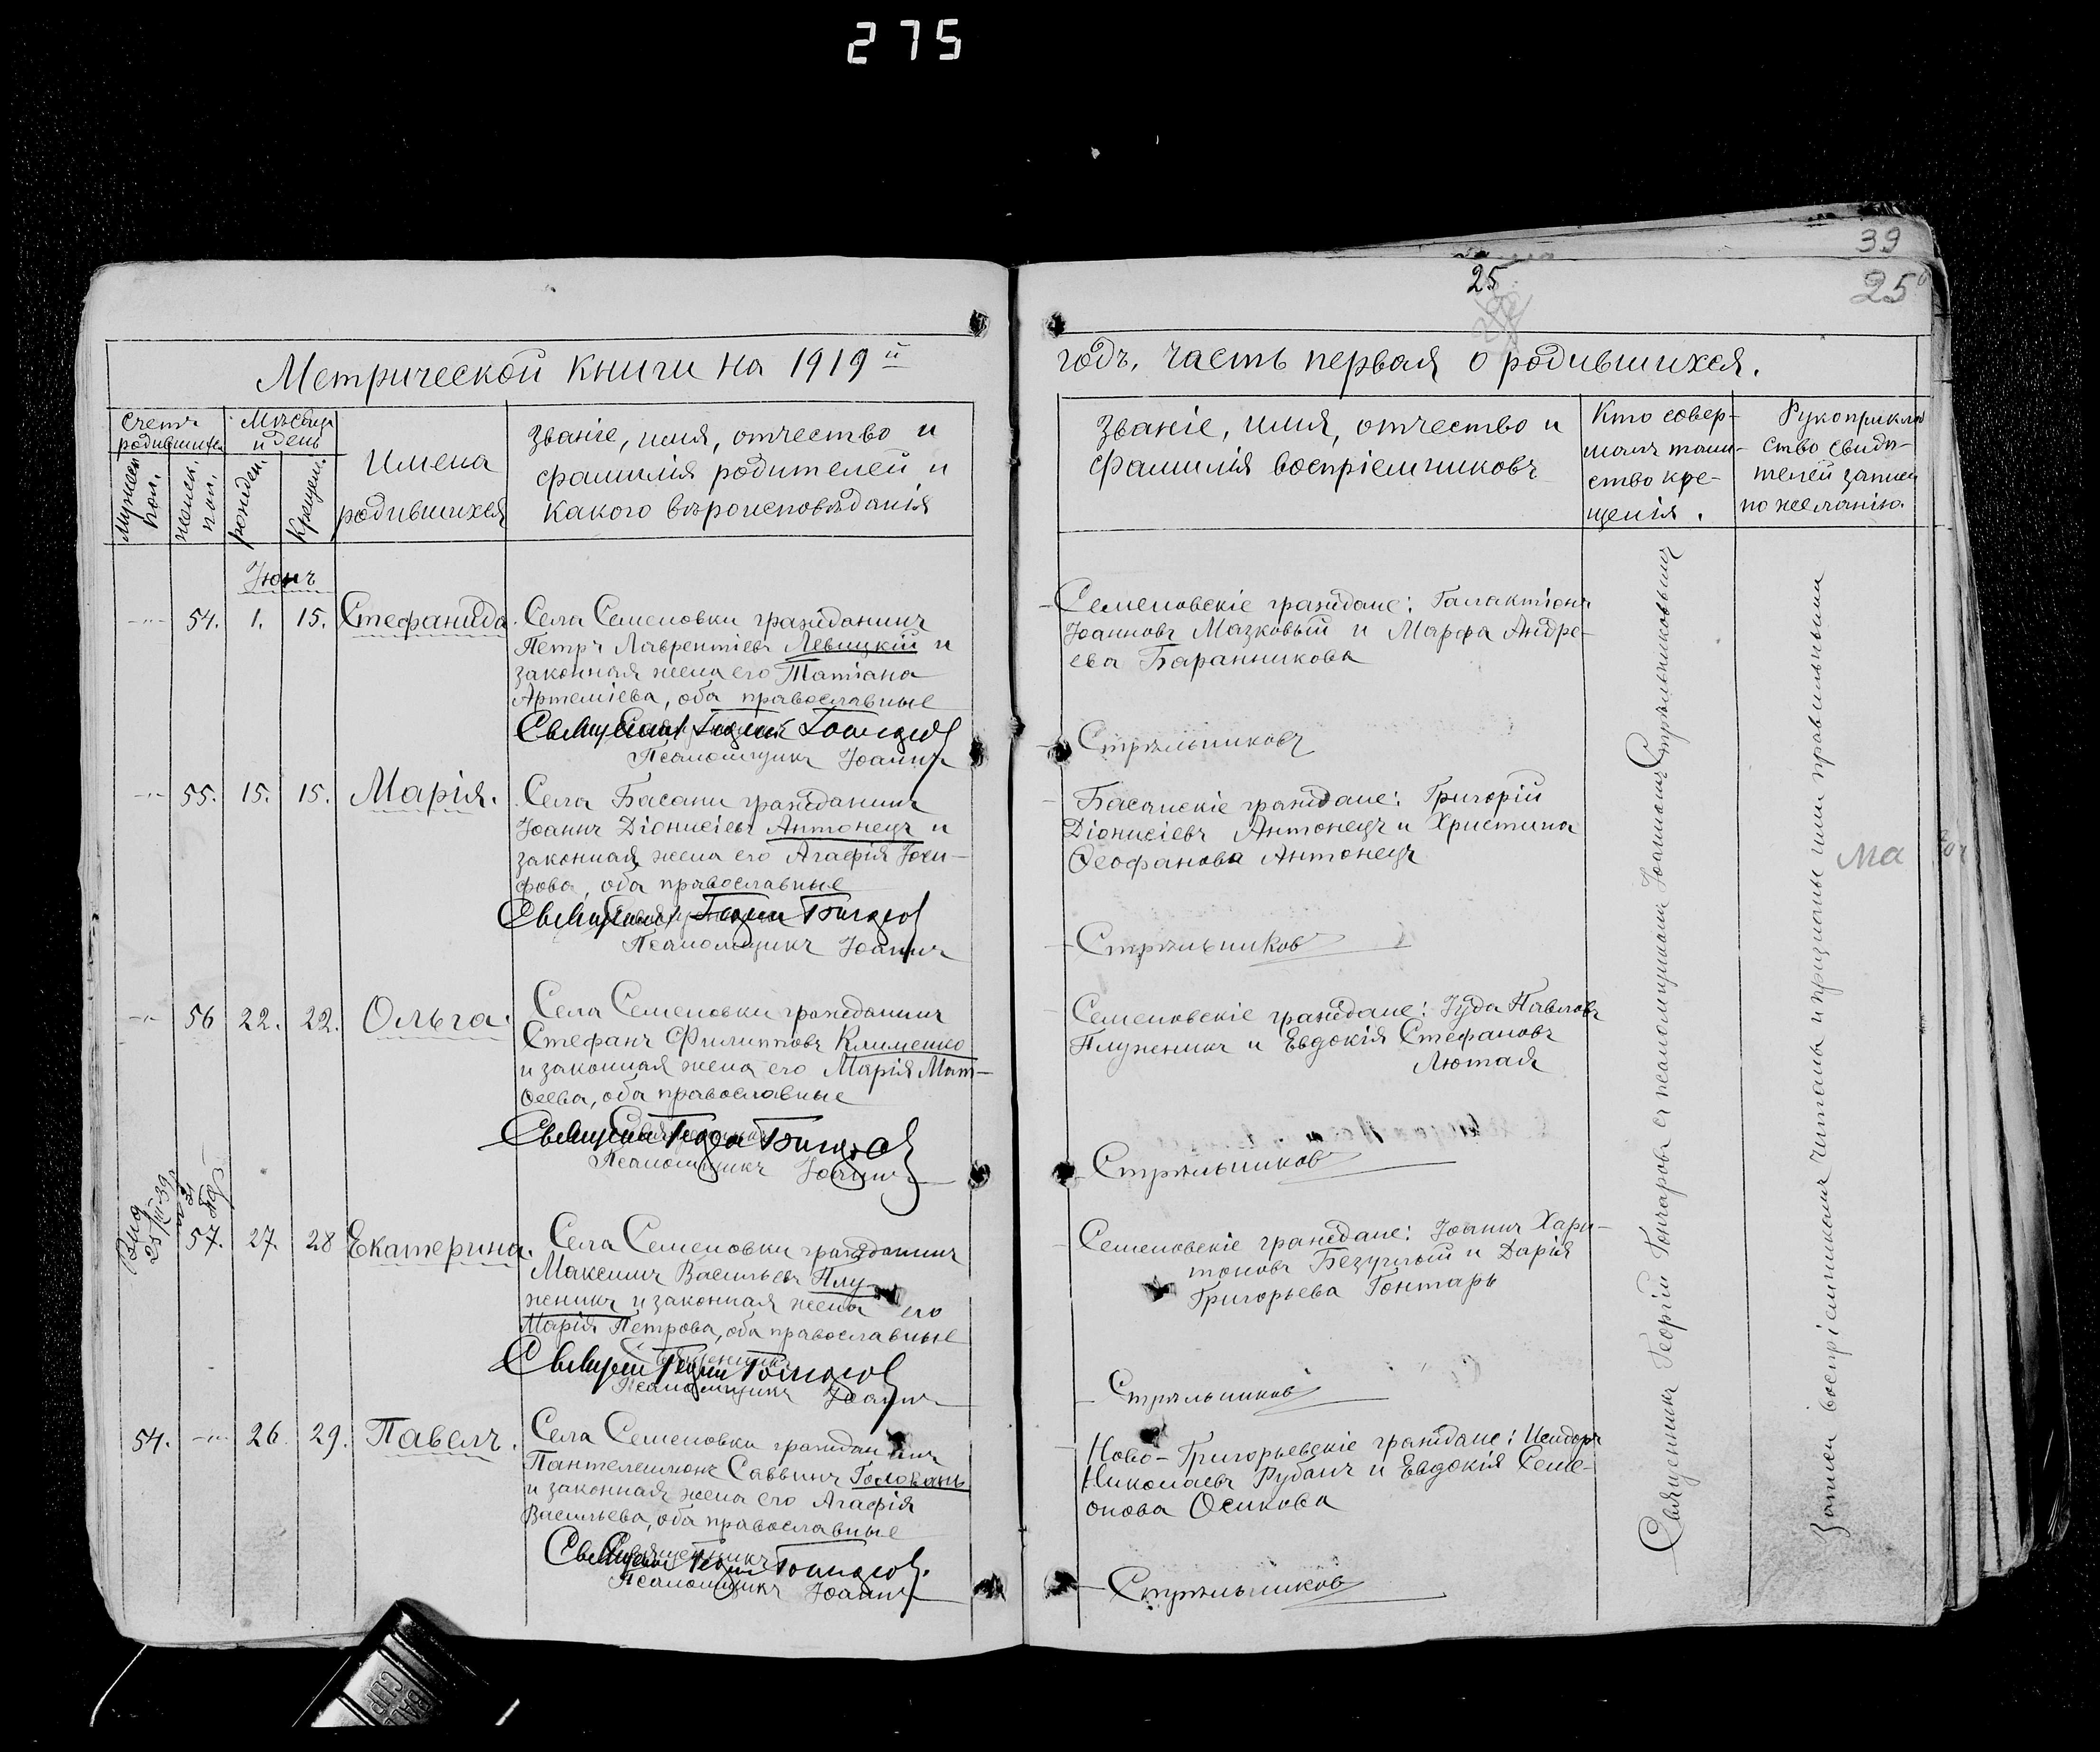 275
39
25
25
Метрической книги на 1919й
годъ, часть первая о родившихся.
Счетъ родившихся
Мѣсяцъ и день
Мужеск. пол.
женск. пол.
рожден.
крещен.
Имена
родившихся
Званіе, имя, отчество и
фамилія родителей и
какого вѣроисповѣданія
Званіе, имя, отчество и
фамилія воспріемниковъ
Кто совер-
шалъ таин-
ство кре-
щенія.
Рукоприклад
ство свидѣ-
телей записи
по желанію.
Іюнь
54. 1. 15. Стефанида.
Села Семеновки гражданинъ
Петръ Лаврентіевъ Левицкій и
законная жена его Татіана
Артеміева, оба православные
Священникъ Георгій Гончаровъ
Псаломщикъ Іоаннъ
Семеновскіе граждане: Галактіонъ
Іоанновъ Мазковый и Марфа Андре-
ева Баранникова
Стрѣльниковъ
55. 15. 15. Марія.
Села Басани гражданинъ
Іоаннъ Діонисіевъ Антонецъ и
законная жена его Агафія Іоси-
фова, оба православные
Священникъ Георгій Гончаровъ
Псаломщикъ Іоаннъ
Басанскіе граждане: Григорій
Діонисіевъ Антонецъ и Христина
Ѳеофанова Антонецъ
Стрѣльниковъ
56 22. 22. Ольга.
Села Семеновки гражданинъ
Стефанъ Филипповъ Клименко
и законная жена его Марія Мат-
ѳеева, оба православные
Священникъ Георгій Гончаровъ
Псаломщикъ Іоаннъ
Семеновскіе граждане: Іуда Павловъ
Плуженикъ и Евдокія Стефановъ
Лютая
Стрѣльниковъ
57. 27. 28 Екатерина.
Села Семеновки гражданинъ
Максимъ Васильевъ Плу-
женикъ и законная жена его
Марія Петрова, оба православные
Священникъ Георгій Гончаровъ
Псаломщикъ Іоаннъ
Семеновскіе граждане: Іоаннъ Хари-
тоновъ Безуглый и Дарія
Григорьева Гонтарь
Стрѣльниковъ
54. 26. 29. Павелъ.
Села Семеновки гражданинъ
Пантелеимонъ Саввинъ Головань
и законная жена его Агафія
Васильева, оба православные
Священникъ Георгій Гончаровъ
Псаломщикъ Іоаннъ
Ново-Григорьевскіе граждане: Исидоръ
Николаевъ Рубанъ и Евдокія Семе-
онова Осикова
Стрѣльниковъ
Священникъ Георгій Гончаровъ съ псаломщикомъ Іоанномъ Стрѣльниковымъ
Записи воспріемниками читаны и признаны ими правильными
Ма